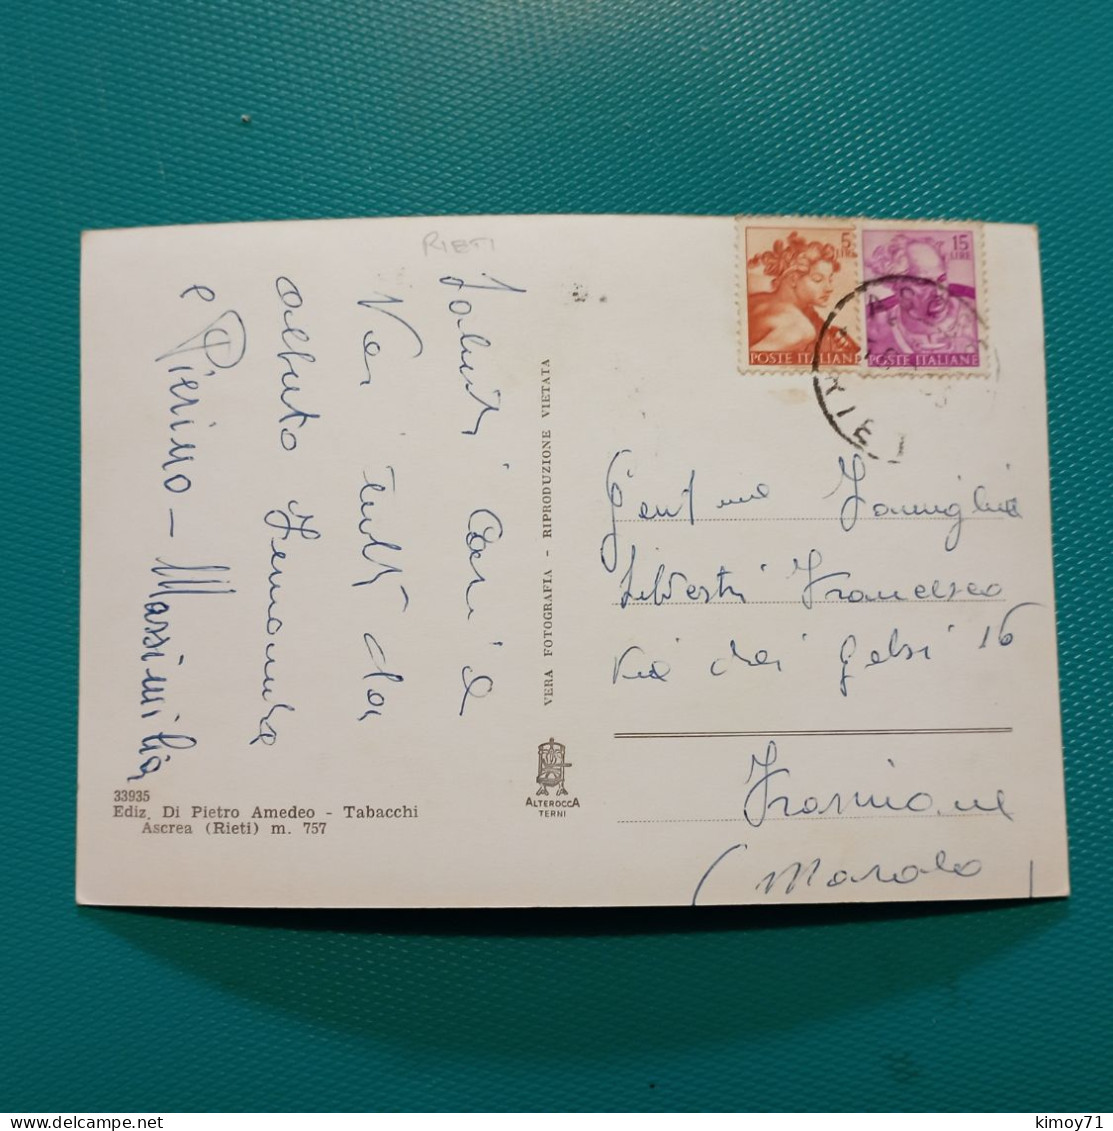 RIETI
Saluti Cari a
Voi tutti da
Alberto Fernanda
e Pierino - Massimilia
33935
Ediz. Di Pietro Amedeo - Tabacchi
Ascrea (Rieti) m. 757
VERA FOTOGRAFIA - RIPRODUZIONE VIETATA
ALTEROCCA
TERNI
5
LIRE
POSTE ITALIANE
15
LIRE
POSTE ITALIANE
Gent/me Famiglia
Silvestri Francesco
Via dei Gelsi 16
Frosinone
(Marolo)
kimoy71